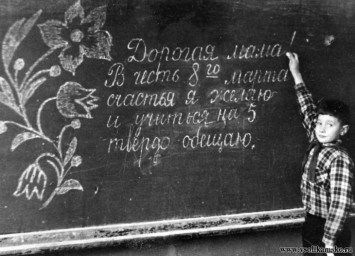 Дорогая мама!
В честь 8го марта
счастья я желаю
и учиться на 5
твердо обещаю.